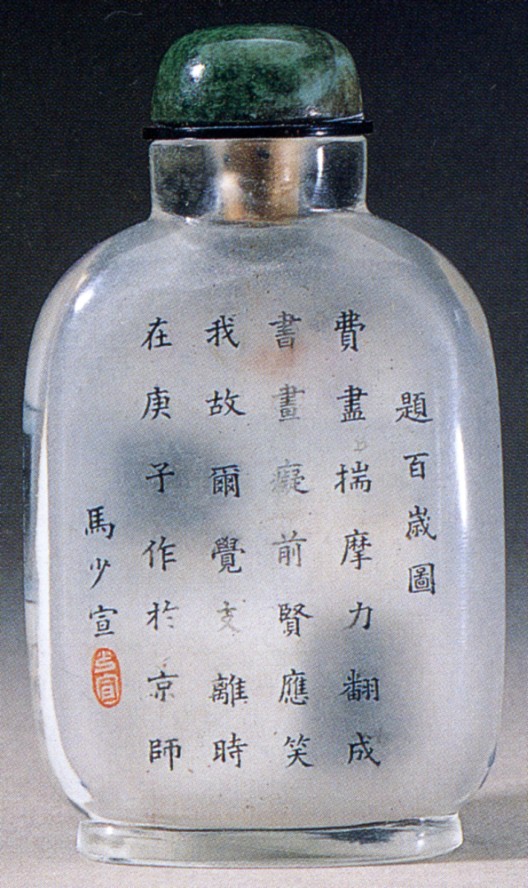 題百歲圖
費盡揣摩力翻成
書畫癡前賢應笑
我故爾覺支離時
在庚子作於京師
馬少宣
少宣